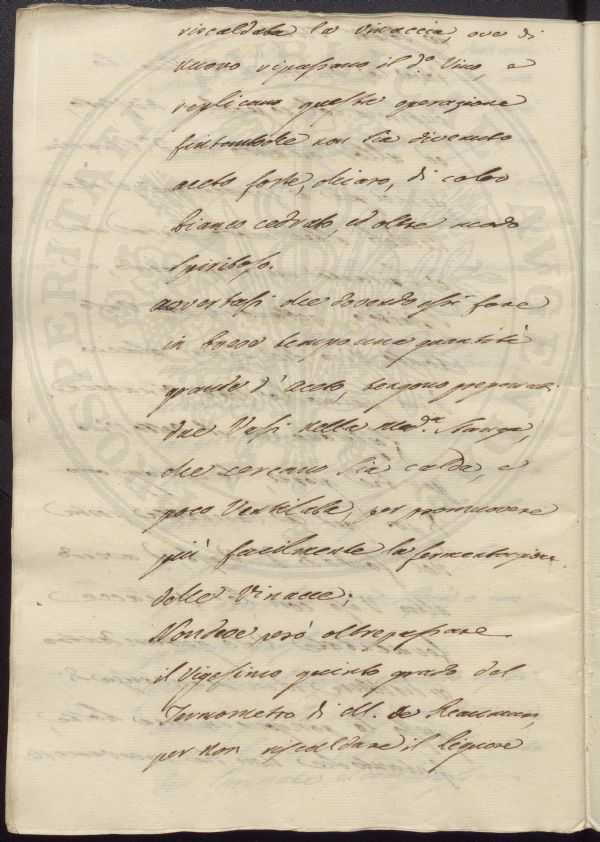 riscaldata la vinaccia, ove di
nuovo ripassano il d.o Vino, e
replicano queste operazione
fintantoche non sia divenuto
aceto forte, chiaro, di color
bianco cedrato, ed oltre modo
spiritoso.
avvertasi che dovendo essi fare
in breve tempo una quantità
grande d'aceto, tengono preparati
due Vasi nella med.a Stanza,
che cercano sia calda, e
poco Ventilata, per promuovere
più facilmente la fermentazione
delle Vinacce;
Non deve però oltrepassare
il Vigesimo quinto grado del
Termometro di M. de Reaumur,
per non riscaldare il liquore